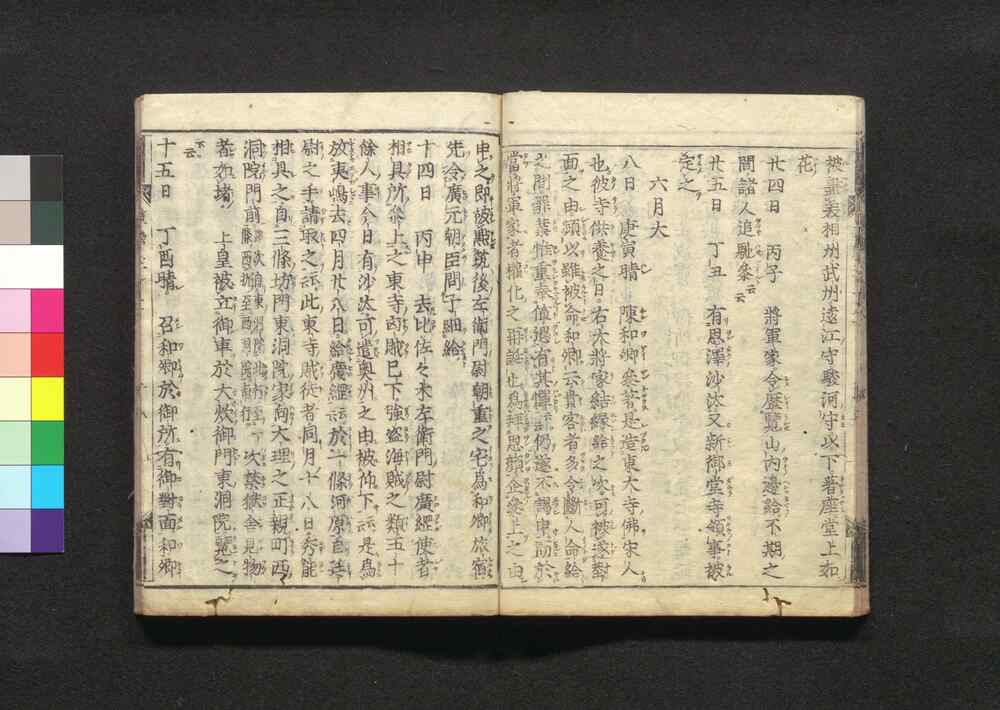 相州武州遠江守駿河守以下著座堂上如
花
廿四日　丙子　將軍家令歴覽山内邊給不期之
間諸人追馳參云云
廿五日　丁丑　有恩澤沙汰又新御堂寺領事被
定之
六月大
八日　庚寅晴　陳和卿參著是造東大寺佛宋人
也彼寺供養之日右大將家結縁給之次可被遂對
面之由頻以雖被命和卿云貴客者多令斷人命給
之間罪業惟重奉値遇有其憚云仍遂不謁申而於
當將軍家者權化之再誕也爲拜恩顔企參上之由
申之即被點筑後左衛門尉朝重之宅爲和卿旅宿
先令廣元朝臣問子細給
十四日　丙申　去比佐々木左衛門尉廣經使者
相具所參上之東寺凶賊已下強盗海賊之類五十
餘人事今日有沙汰可遣奥州之由被仰下云是爲
放夷嶋去四月廿八日給廣經云於一條河原自廷
尉之手請取之云此東寺賊徒者同月十八日秀能
相具之自三條坊門東洞院家向大理之正親町西
洞院門前
次禁獄舎見物
者如堵　上皇被立御車於大炊御門東洞院覽之
云云
十五日　丁酉晴　召和卿於御所有御對面和卿